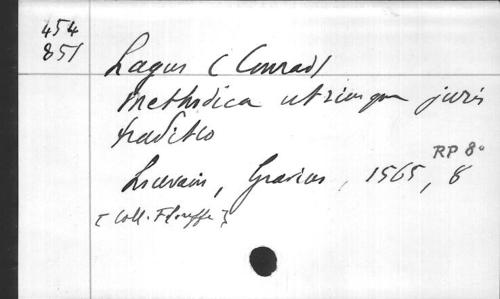 454
851
Lagus (Conrad)
Methodica utriusque juris
traditio
RP 8°
Louvain, Gravius, 1565, 8
[Coll.